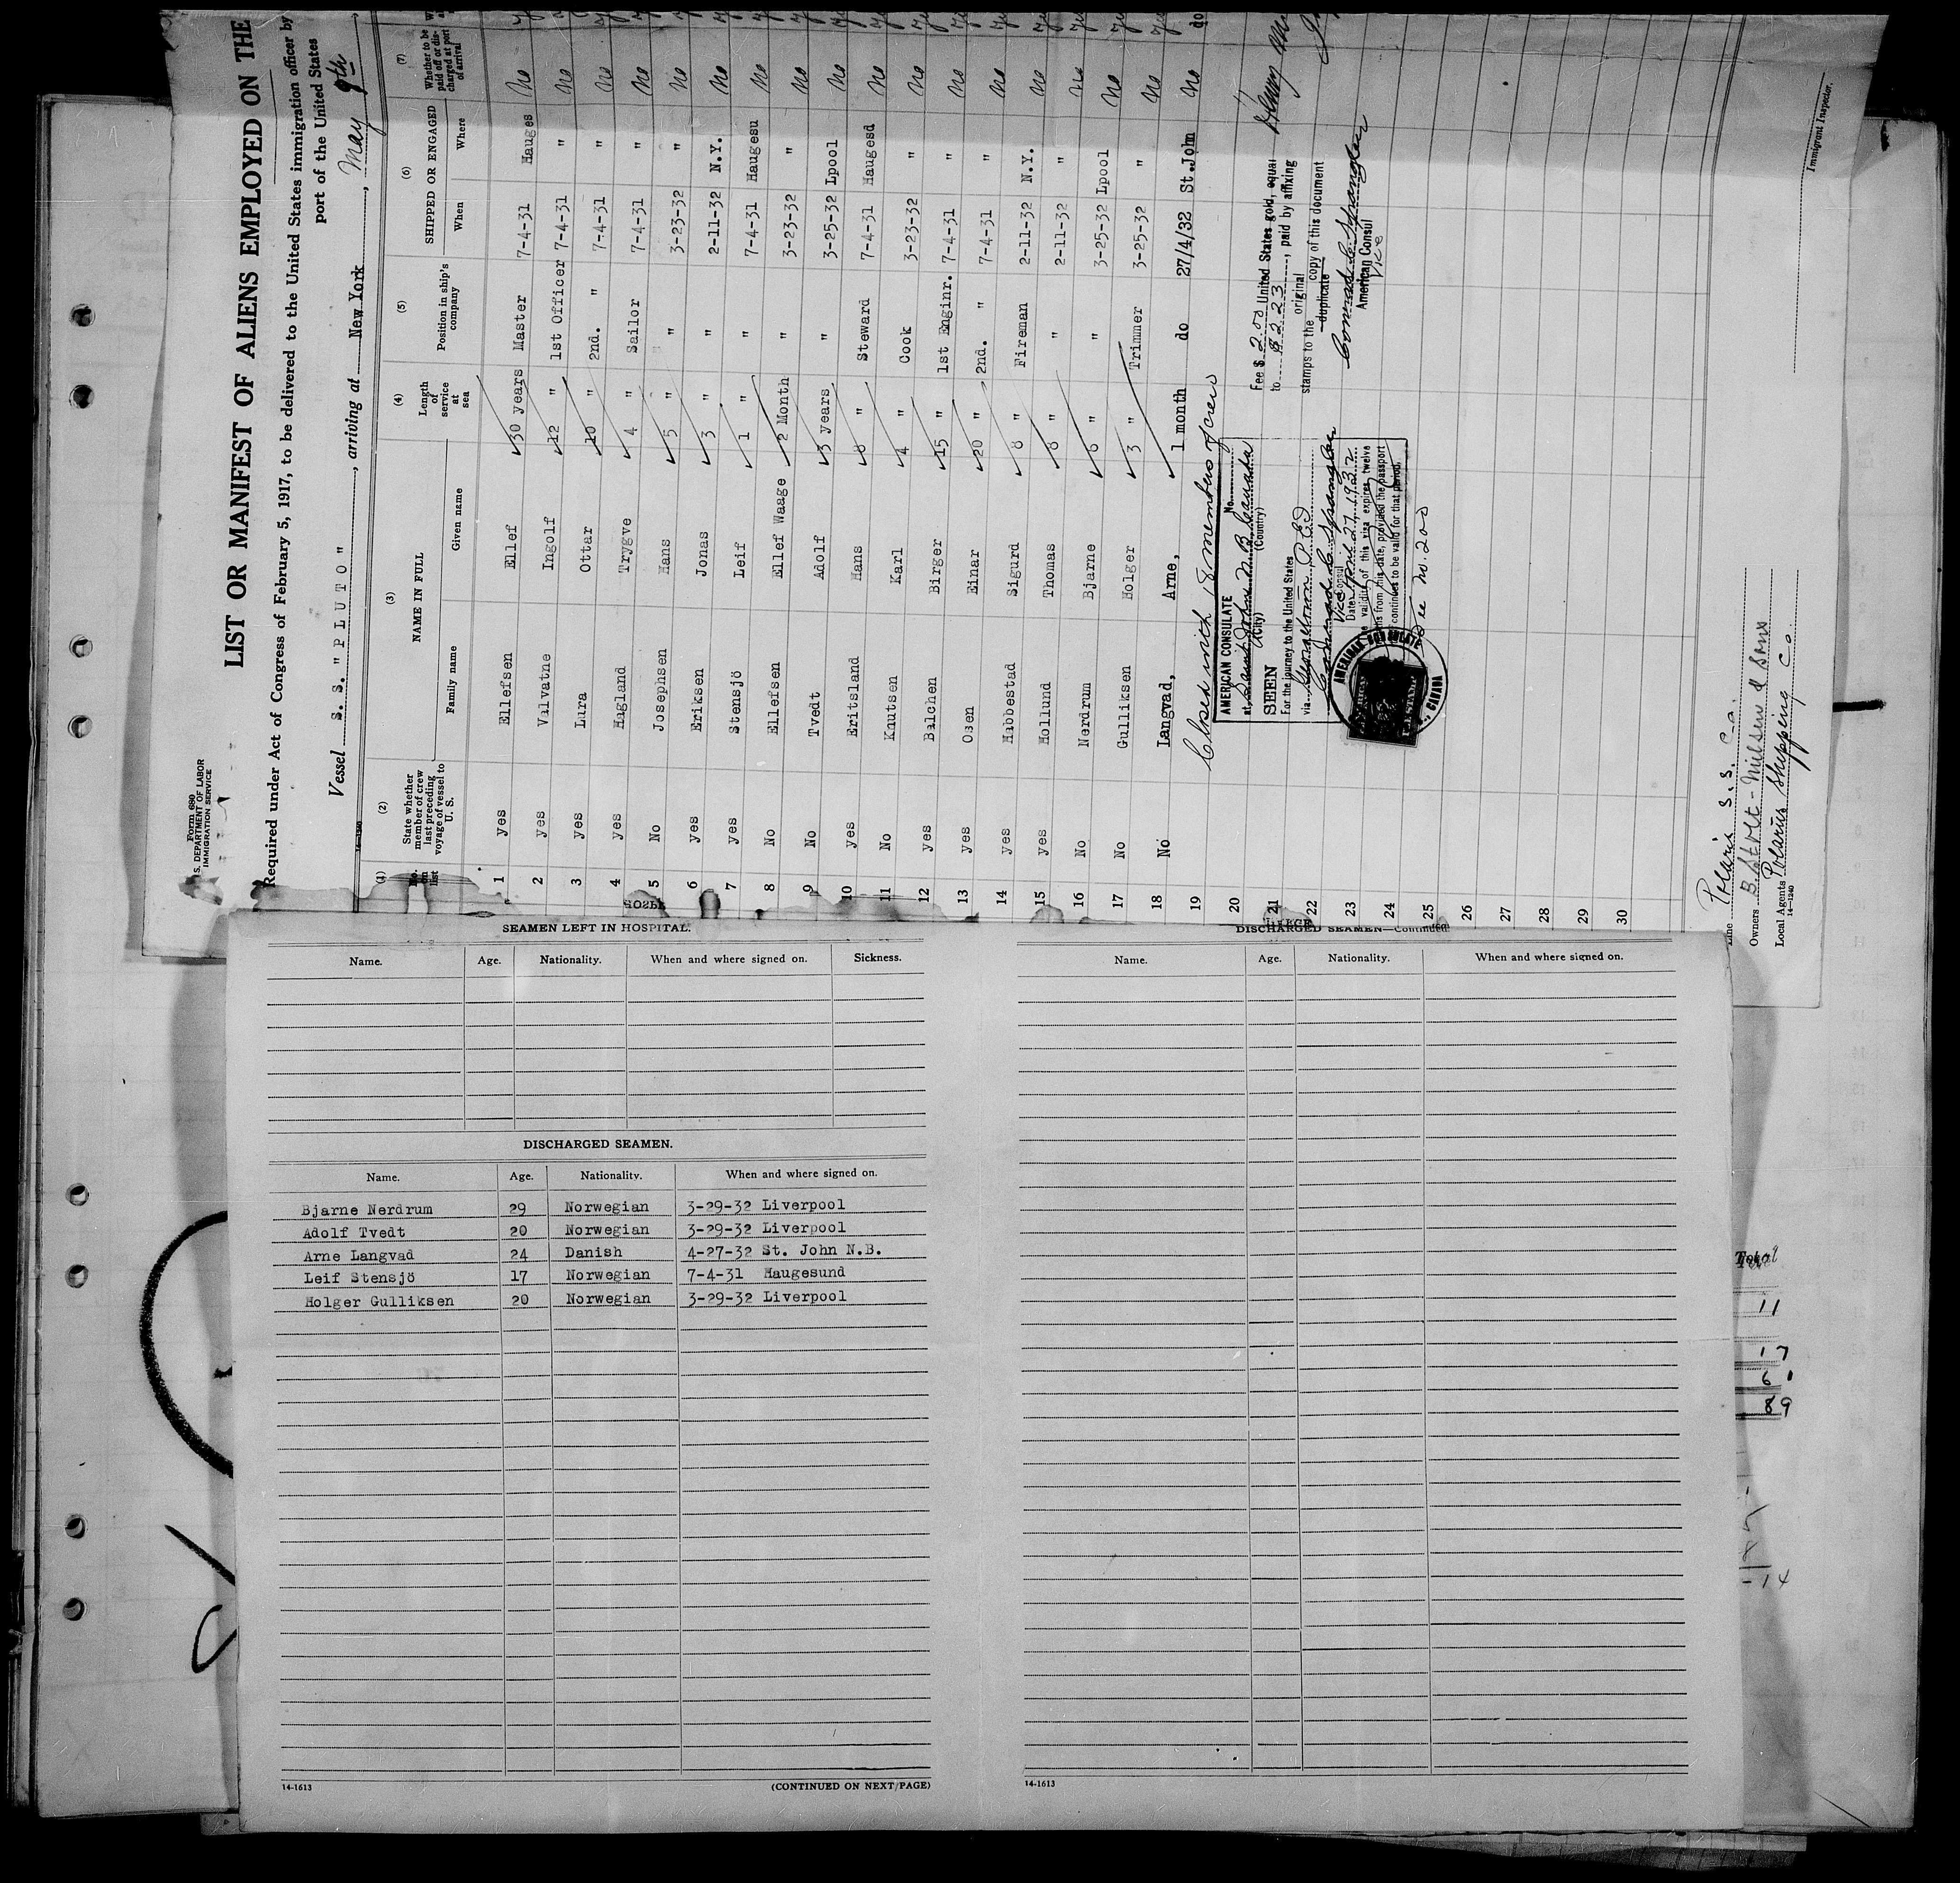 Form 680
S. DEPARTMENT OF LABOR
IMMIGRATION SERVICE
LIST OR MANIFEST OF ALIENS EMPLOYED ON THE
Required under Act of Congress of February 5, 1917, to be delivered to the United States immigration officer by
port of the United States
Vessel S. S. "PLUTO", arriving at New York, May 9th
(1) (2) (3) (4) (5) (6) (7)
No. on list State whether member of crew last preceding voyage of vessel to U. S. NAME IN FULL Length of service at sea Position in ship's company SHIPPED OR ENGAGED Whether to be paid off or discharged at port of arrival
Family name Given name When Where
1 yes Ellefsen Ellef 30 years Master 7-4-31 Hauges No
2 yes Valvatne Ingolf 12 " 1st Officer 7-4-31 " No
3 yes Lura Ottar 10 " 2nd. " 7-4-31 " No
4 yes Hagland Trygve 4 " Sailor 7-4-31 " No
5 No Josephsen Hans 5 " " 3-23-32 " No
6 yes Eriksen Jonas 3 " " 2-11-32 N.Y. No
7 yes Stensjö Leif 1 " " 7-4-31 Haugesu No
8 No Ellefsen Ellef Waage 2 Month " 3-23-32 " No
9 No Tvedt Adolf 3 years " 3-25-32 Lpool No
10 yes Eritsland Hans 8 " Steward 7-4-31 Haugesd No
11 No Knutsen Karl 4 " Cook 3-23-32 " No
12 yes Balchen Birger 15 " 1st Enginr. 7-4-31 " No
13 yes Osen Einar 20 " 2nd. " 7-4-31 " No
14 yes Habbestad Sigurd 8 " Fireman 2-11-32 N.Y. No
15 yes Hollund Thomas 8 " " 2-11-32 " No
16 No Nerdrum Bjarne 6 " " 3-25-32 Lpool No
17 No Gulliksen Holger 3 " Trimmer 3-25-32 " No
18 No Langvad, Arne, 1 month do 27/4/32 St.John No do
19
20
21
22
23
24
25
26
27
28
29
30
Closed with 18 members of crew
AMERICAN CONSULATE No.
at Saint John N.B. Canada
(City) (Country)
SEEN
For the journey to the United States
via
Conrad C. Spangler
Vice Consul
Date April 27 1932
validity of this visa expires twelve
from this date, provided the passport
continues to be valid for that period.
Fee No. 200
Fee $ 2.00 United States gold, equal
to 8223, paid by affixing
stamps to the original copy of this document
duplicate
Conrad C. Spangler
American Consul
Vice
Line Polaris S. S. Co.
Owners B. Stolt-Nielsen & Sons
Local Agents Polarus Shipping Co.
14-1240
Immigrant Inspector.
SEAMEN LEFT IN HOSPITAL.
Name. Age. Nationality. When and where signed on. Sickness.
DISCHARGED SEAMEN.
Name. Age. Nationality. When and where signed on.
Bjarne Nerdrum 29 Norwegian 3-29-32 Liverpool
Adolf Tvedt 20 Norwegian 3-29-32 Liverpool
Arne Langvad 24 Danish 4-27-32 St. John N.B.
Leif Stensjö 17 Norwegian 7-4-31 Haugesund
Holger Gulliksen 20 Norwegian 3-29-32 Liverpool
14-1613 (CONTINUED ON NEXT PAGE)
DISCHARGED SEAMEN—Continued.
Name. Age. Nationality. When and where signed on.
14-1613
Total
11
17
6
89
-14